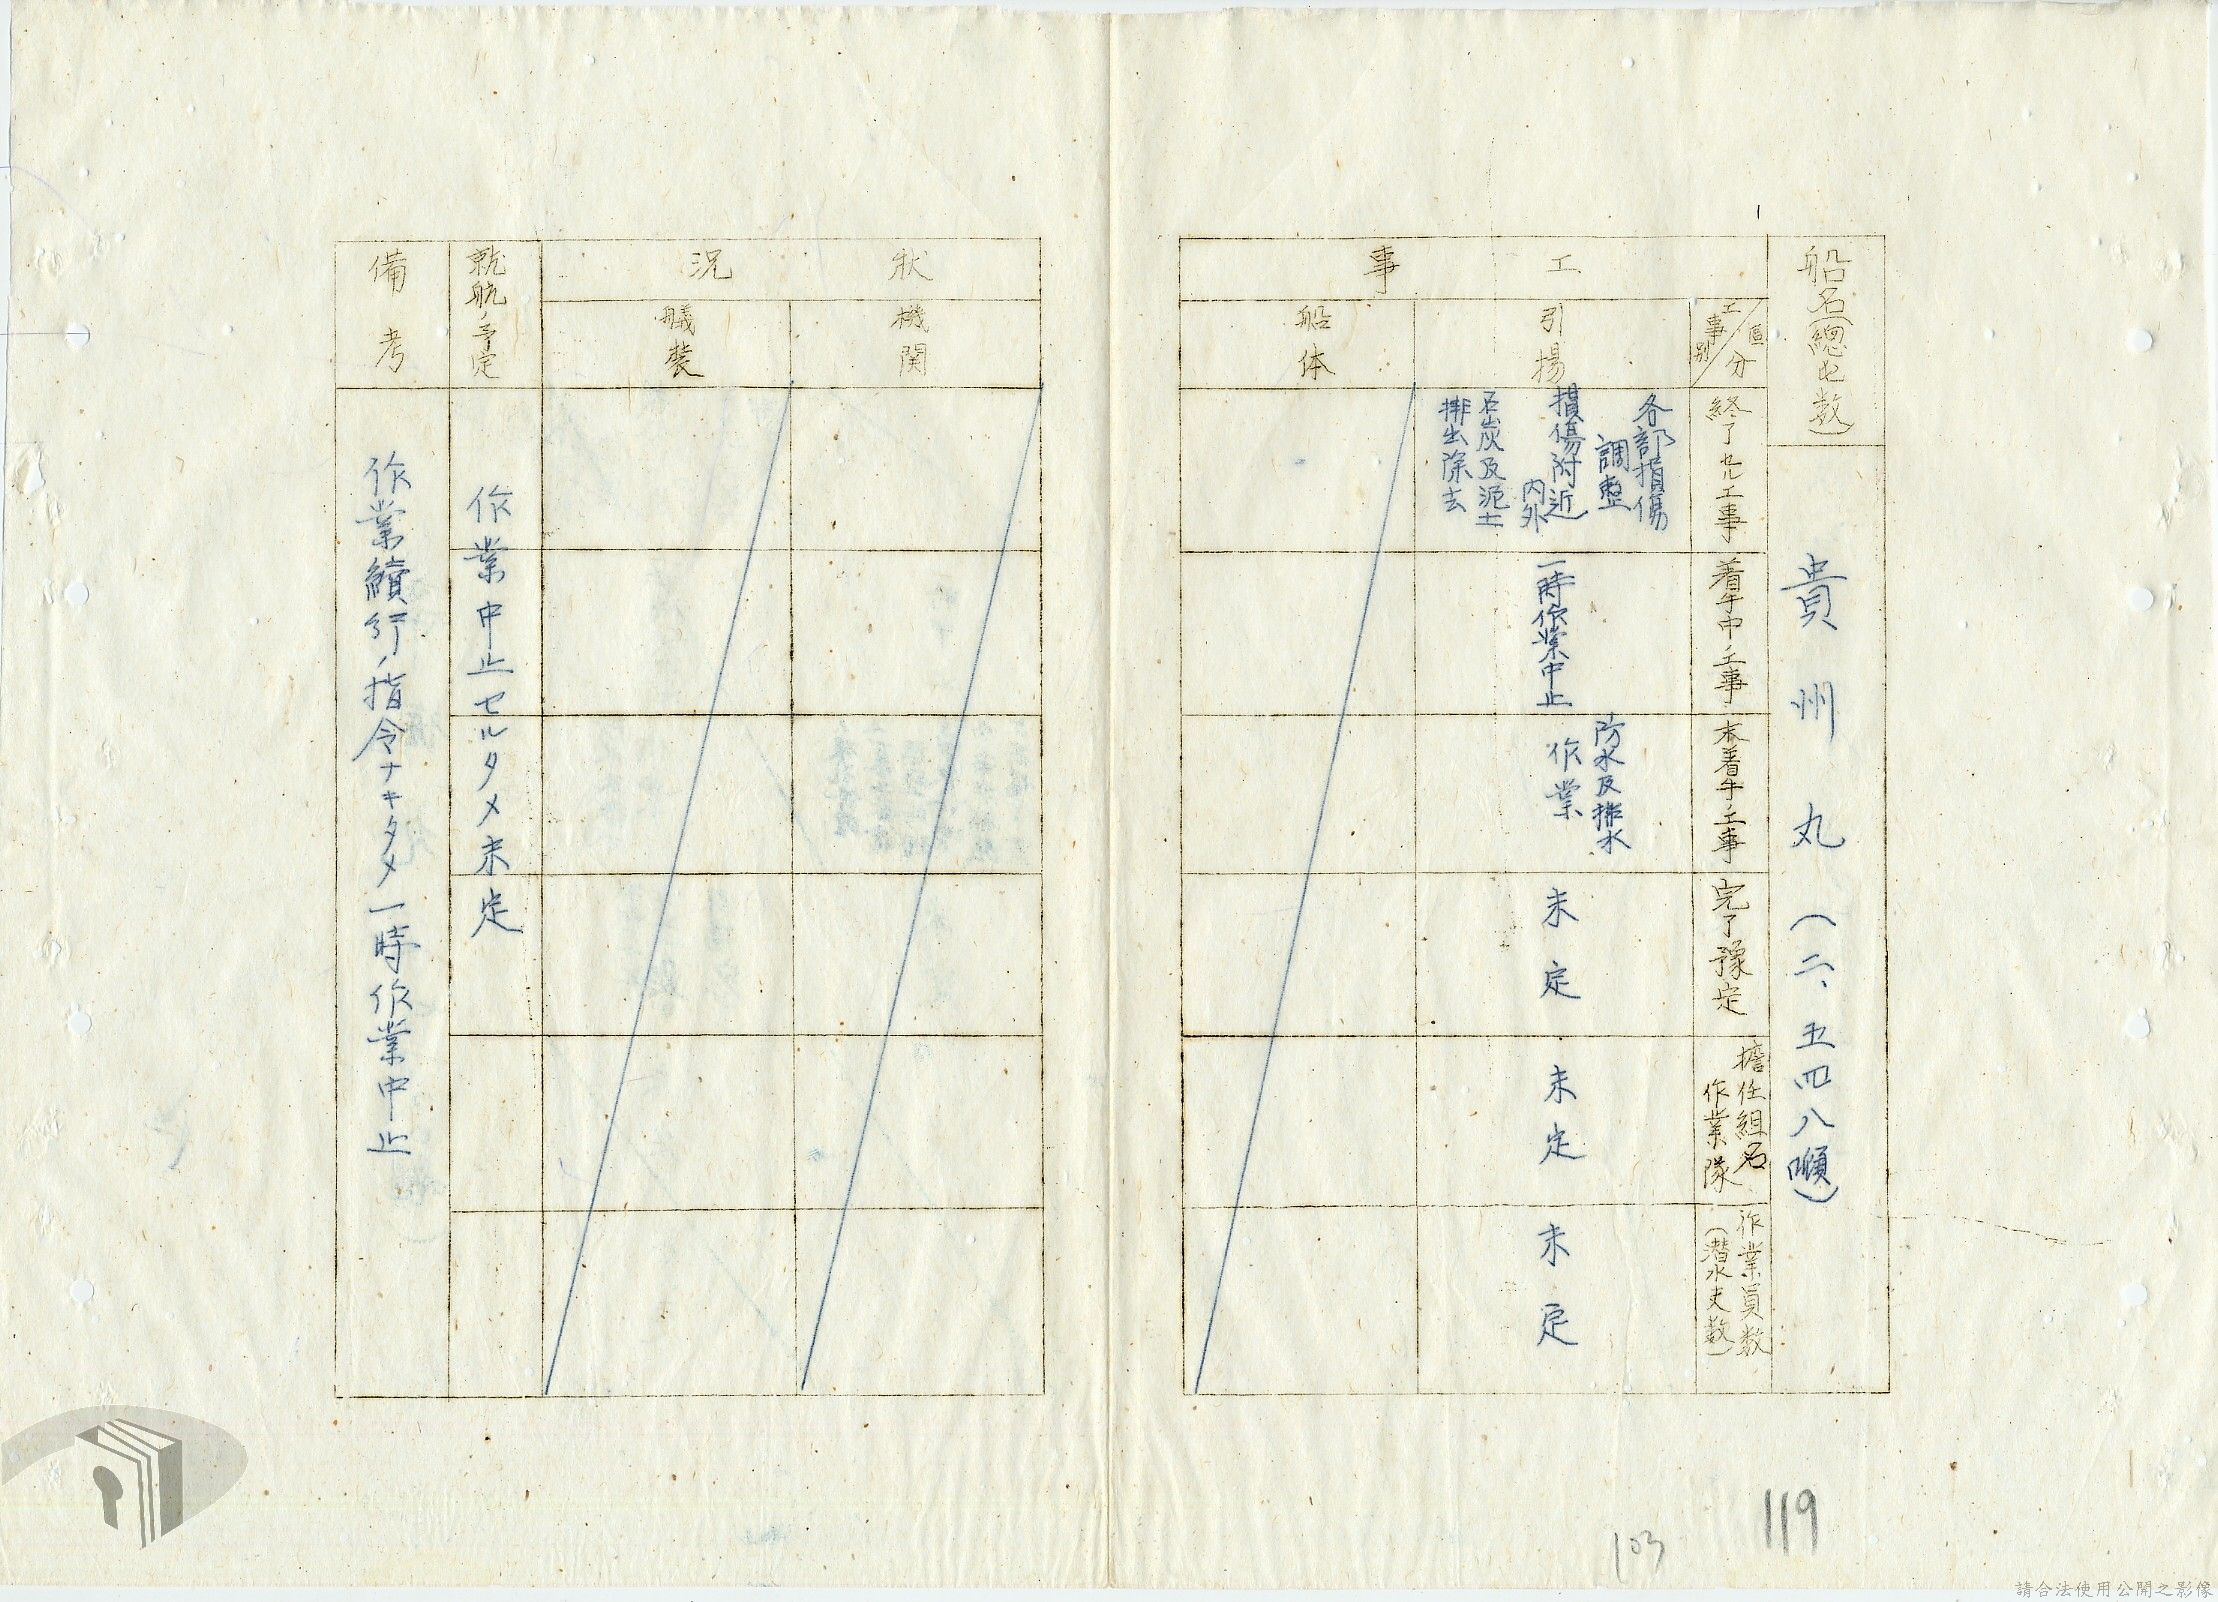 船名(總屯数)
貴州丸(二、五四八噸)
工事
狀況
區分
工事別
終了セル工事
着手中ノ工事
未着手ノ工事
完了豫定
擔任組名
作業隊
作業員数
(潜水夫数)
引揚
各部損傷
調整
損傷附近
内外
石炭及泥土
排出除去
一時作業中止
防水及排水
作業
未定
未定
未定
船体
機関
艤裝
就航ノ予定
作業中止セルタメ未定
備考
作業續行ノ指令ナキタメ一時作業中止
119
103
請合法使用公開之影像